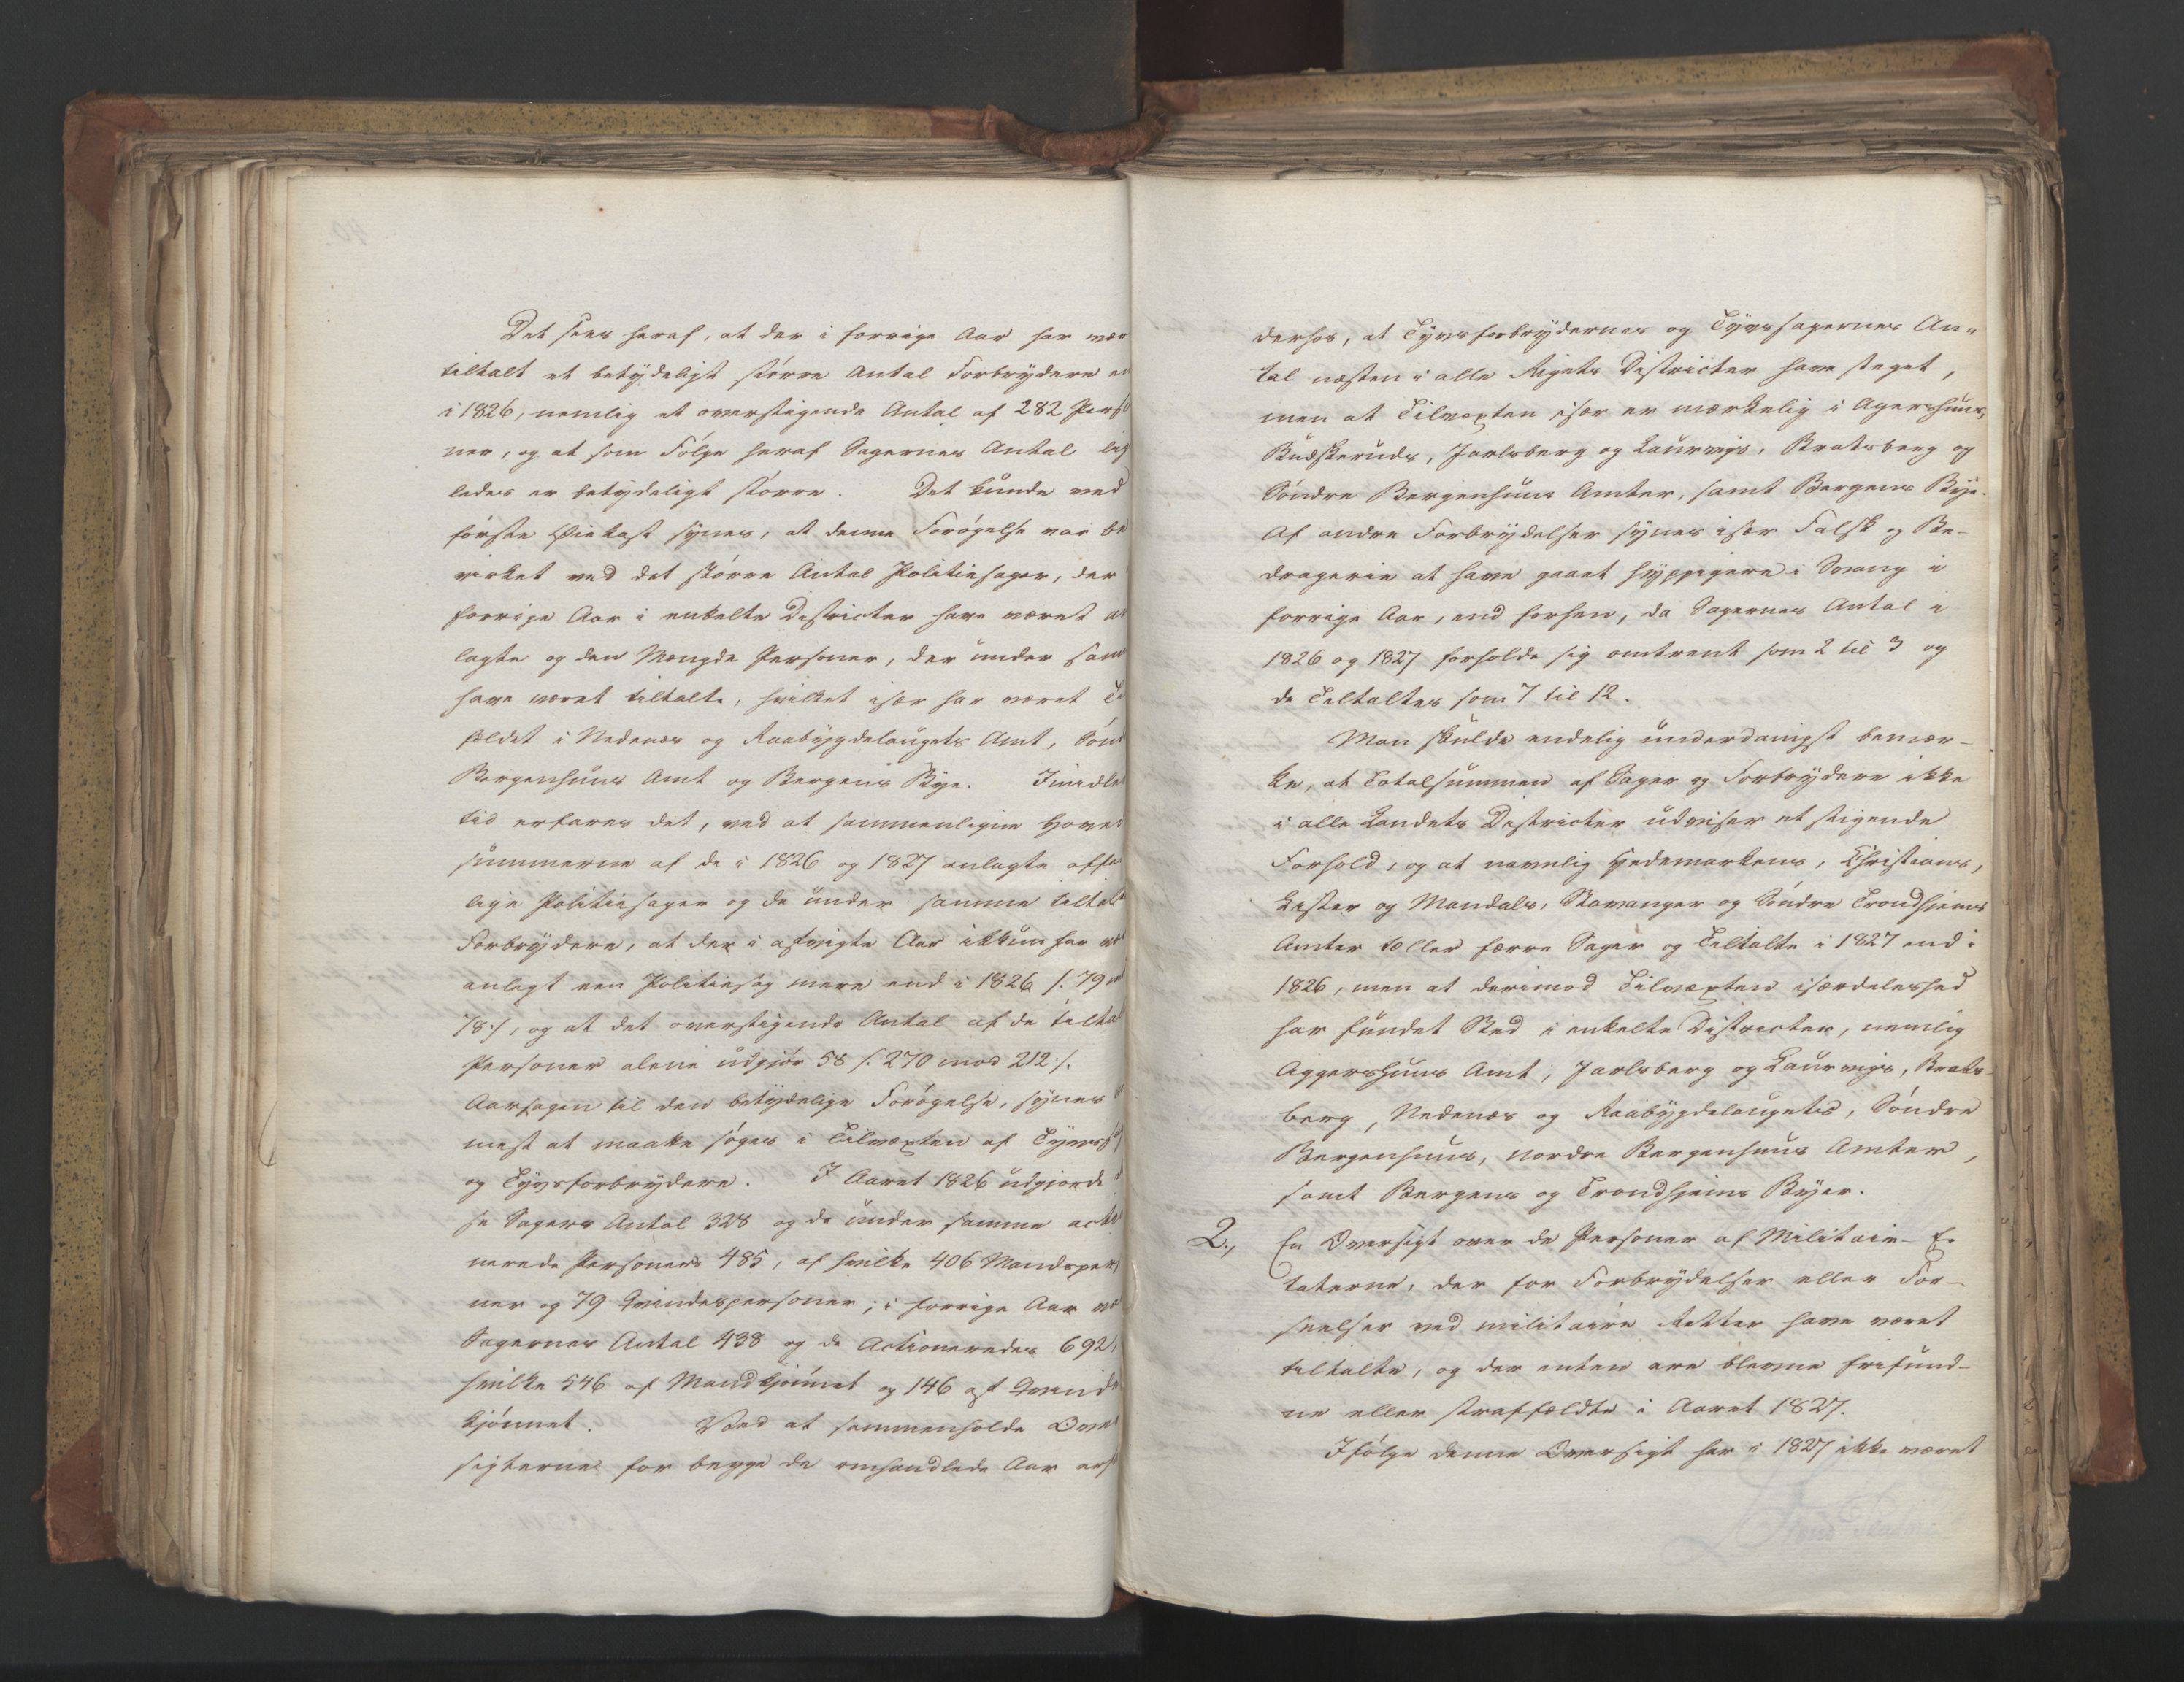 Det sees heraf, at der i forrige Aar har vær
tiltalt et betydeligt større Antal Forbrydere en
i 1826, nemlig et overstigende Antal af 282 Perso
ner, og at som Følge heraf Sagernes Antal lig
ledes er betydeligt større. Det kunde ved
første Øiekast synes, at denne Forøgelse var be
virket ved det større Antal Politiesager, der
forrige Aar i enkelte Districter have været an
lagte og den Mængde Personer, der under sam
have været tiltalte, hvilket især har været Til
fældet i Nedenæs og Raabygdelaugets Amt, Sønd
Bergenhuus Amt og Bergens Bye. Imidler
tid erfares det, ved at sammenligne Hoved
summerne af de i 1826 og 1827 anlagte offe
lige Politiesager og de under samme tiltalt
Forbrydere, at der i afvigte Aar ikkun har vær
anlagt een Politiesag mere end i 1826 /: 79 mod
78 :/, og at det overstigende Antal af de tiltal
Personer alene udgjør 58 /: 270 mod 212 :/.
Aarsagen til den betydelige Forøgelse, synes
mest at maatte søges i Tilvæxten af Tyvssag
og Tyvsforbrydere. I Aaret 1826 udgjorde
se Sagers Antal 328 og de under samme actio
nerede Personers 485, af hvilke 406 Mandsper
ner og 79 Qvindespersoner; i forrige Aar var
Sagernes Antal 438 og de Actioneredes 692,
hvilke 546 af Mandkjønnet og 146 af Qvinde
kjønnet. Ved at sammenholde Over
sigterne for begge de omhandlede Aar erf
derhos, at Tyvsforbrydernes og Tyvssagernes An-
tal næsten i alle Rigets Districter have steget,
men at Tilvæxten især er mærkelig i Agershuus,
Budskeruds, Jarlsberg og Laurvigs, Bratsberg og
Søndre Bergenhuus Amter, samt Bergens Bye.
Af andre Forbrydelser synes især Falsk og Be-
dragerie at have gaaet hyppigere i Svang i
forrige Aar, end forhen, da Sagernes Antal i
1826 og 1827 forholde sig omtrent som 2 til 3 og
de Tiltaltes som 7 til 12.
Man skulde endelig underdanigst bemær-
ke, at Totalsummen af Sager og Forbrydere ikke
i alle Landets Districter udviser et stigende
Forhold, og at navnlig Hedemarkens, Christians,
Lister og Mandals, Stavanger og Søndre Trondhjems
Amter tæller færre Sager og Tiltalte i 1827 end i
1826, men at derimod Tilvæxten isærdeleshed
har fundet Sted i enkelte Districter, nemlig
Aggershuus Amt, Jarlsberg og Laurvigs, Brats-
berg, Nedenæs og Raabygdelaugets, Søndre
Bergenhuus, Nordre Bergenhuus Amter,
samt Bergens og Trondhjems Byer.
2., En Oversigt over de Personer af Militair-E-
taterne, der for Forbrydelser eller For-
seelser ved militaire Retter have været
tiltalte, og der enten ere blevne frifund-
ne eller straffældte i Aaret 1827.
Ifølge denne Oversigt har i 1827 ikke været